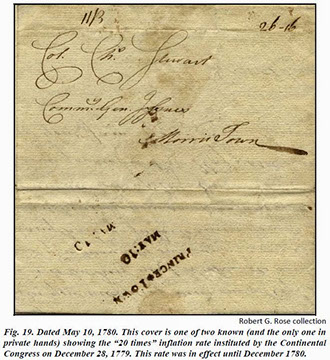 11/3
26-16
Col. Chs. Stewart
Morris Town
MAY.10
MAY.10
PRINCETOWN
Robert G. Rose collection
Fig. 19. Dated May 10, 1780. This cover is one of two known (and the only one in
private hands) showing the “20 times” inflation rate instituted by the Continental
Congress on December 28, 1779. This rate was in effect until December 1780.